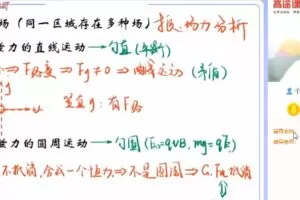 场(同一区域存在多种场) 把场力分析
力的直线运动 → 匀直(平衡)
⇒ F洛变 ⇒ Fy≠0 ⇒ 曲线运动 (矛盾)
竖直y:有F洛
力的圆周运动 → 匀圆(F洛=qvB, mg=qE)
不抵消,合成一个恒力 ⇒ 不是圆周 ⇒ G、F电抵消
高途课